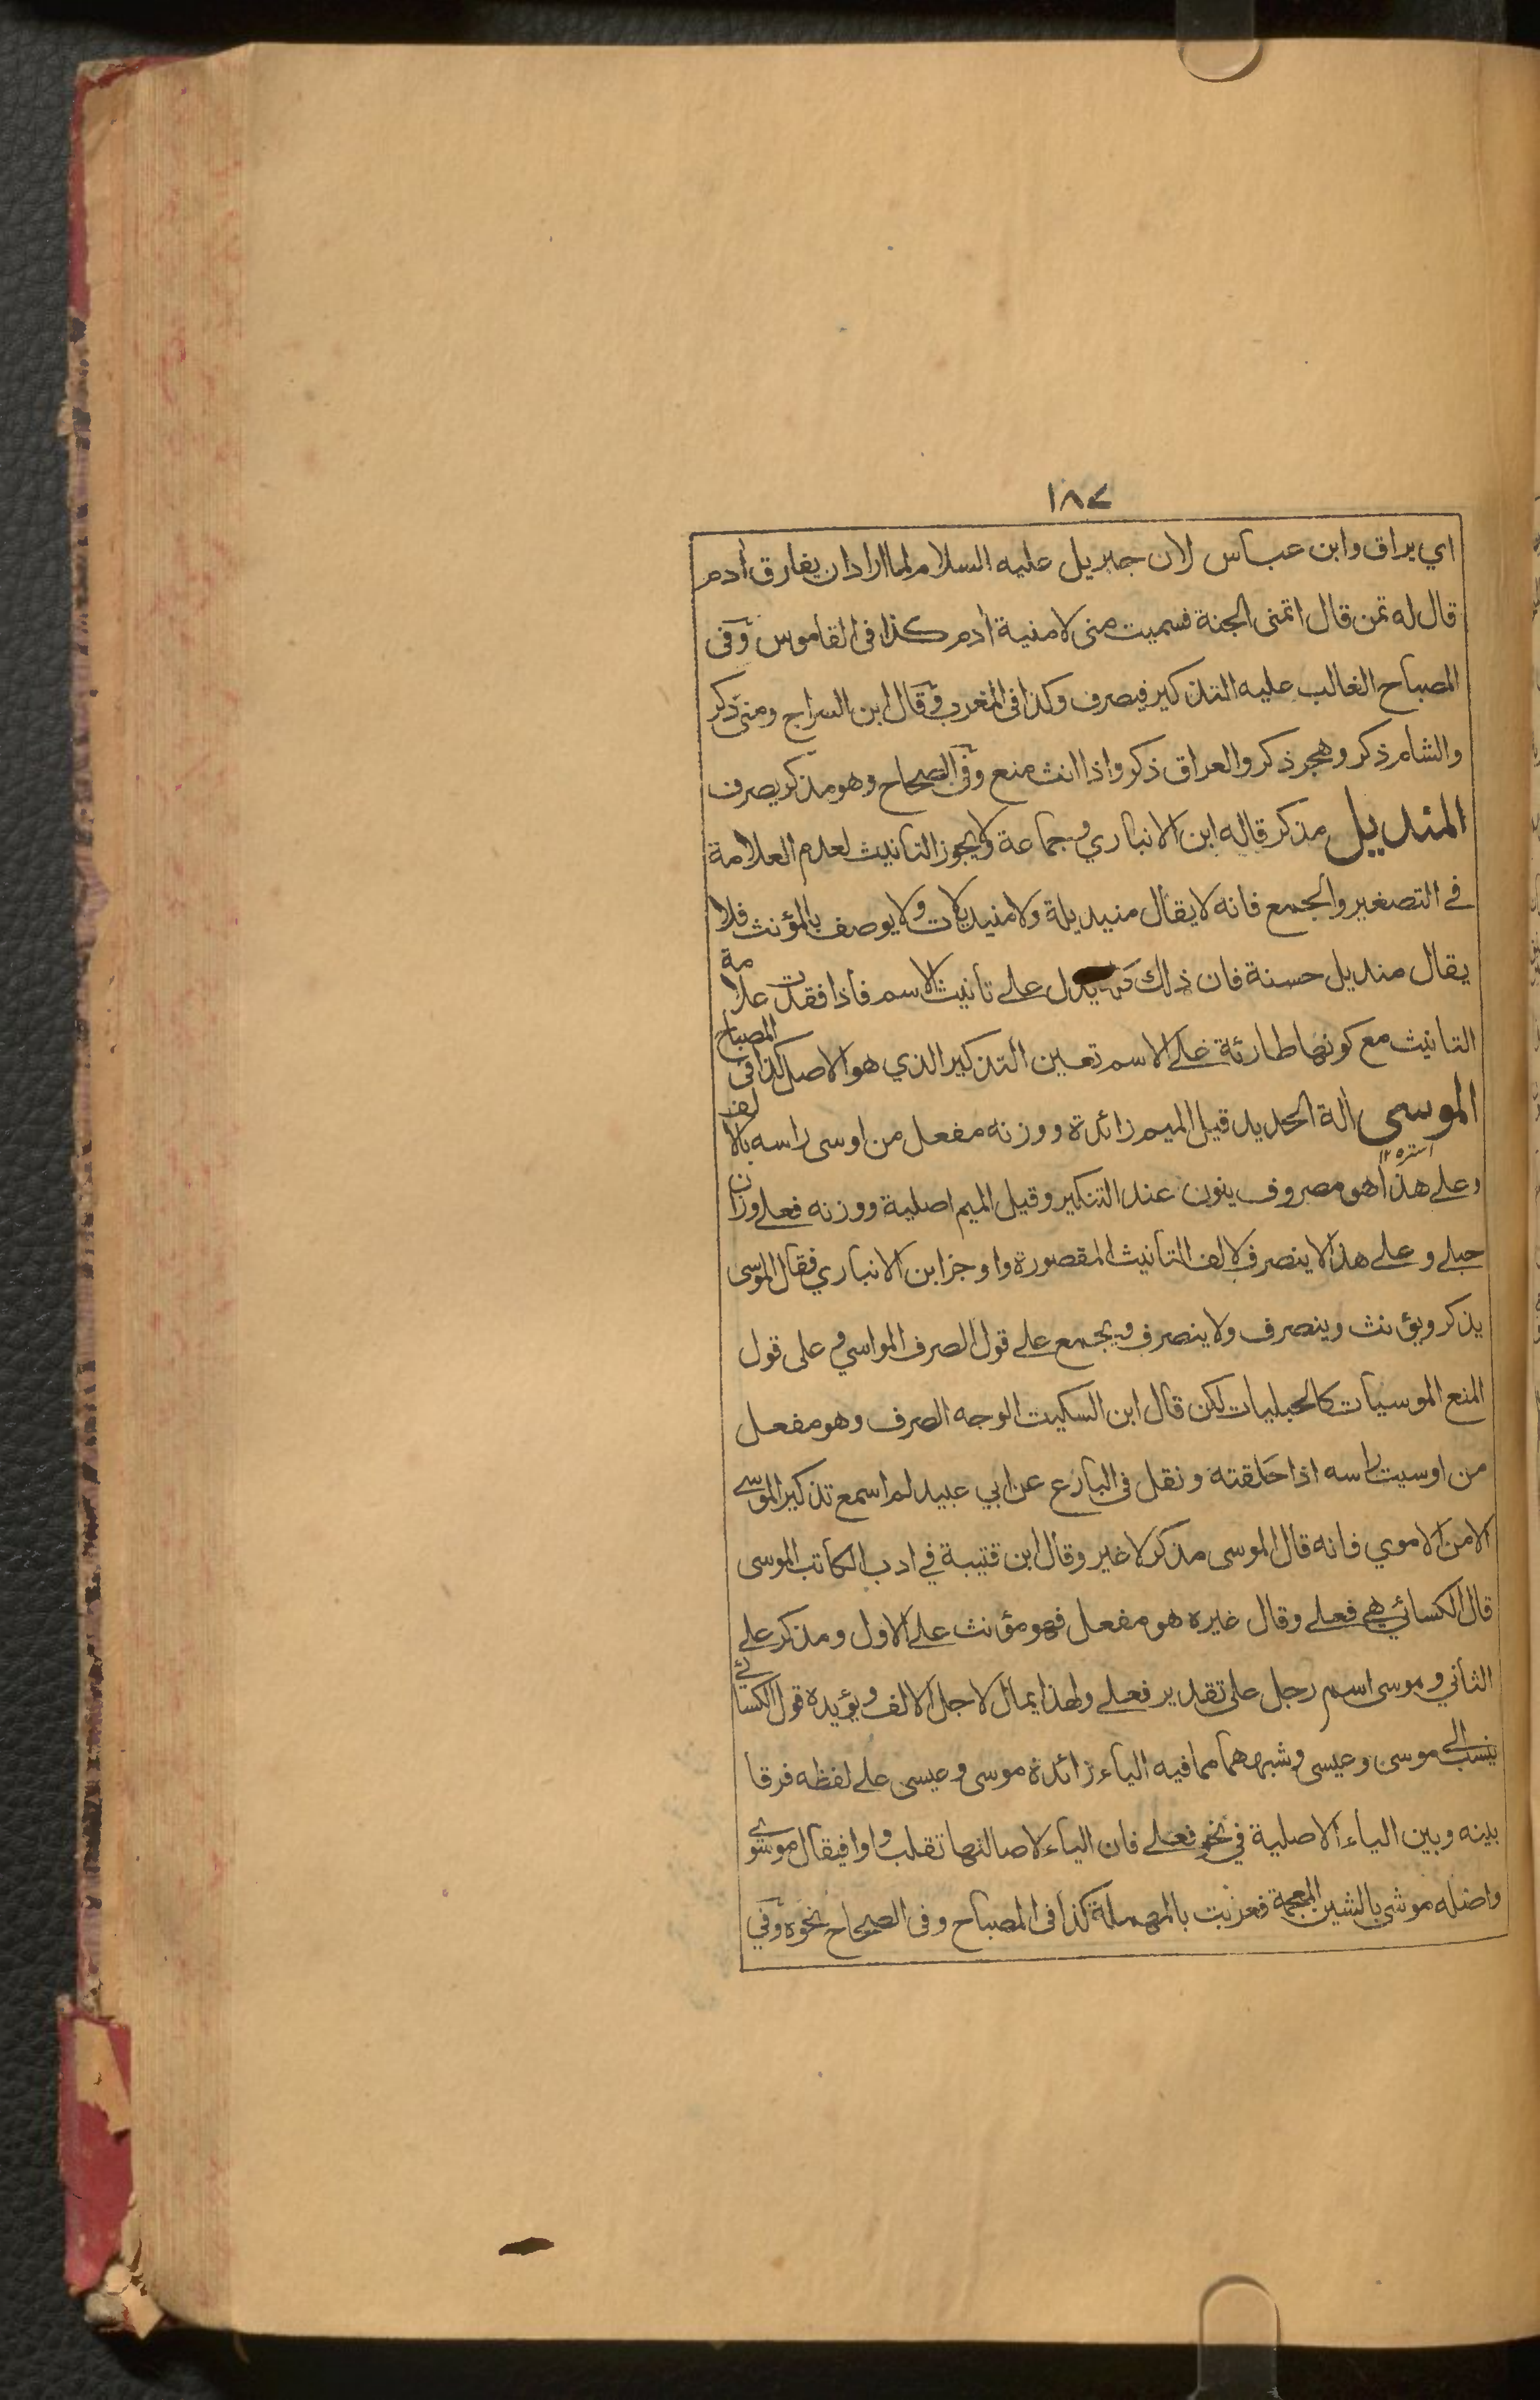 ١٨٧
اي يراق وابن عباس لان جبريل عليه السلام لما اراد ان يفارق أدم
قال له تمن قال اتمنى الجنة فسميت منى لامنية أدم كذا في القاموس وفي
المصباح الغالب عليه التذكير فيصرف وكذا في المغرب وقال ابن السراج ومنى ذكر
والشام ذكر وهجر ذكر والعراق ذكر واذا انث منع وفي الصحاح وهو مذكر يصرف
المنديل مذكر قاله ابن الانباري وجماعة ولايجوز التانيث لعدم العلامة
في التصغير والجمع فانه لايقال منيديلة ولامنيديلات ولايوصف بالمؤنث فلا
يقال منديل حسنة فان ذلك كله يدل على تانيث الاسم فاذا فقدت علامة
التانيث مع كونها طارئة على الاسم تعين التذكير الذي هو الاصل كذا في المصباح
الموسى ألة الحديد قيل الميم زائدة ووزنه مفعل من اوسى راسه بالالف
استره ١٢
وعلى هذا هو مصروف ينون عند التنكير وقيل الميم اصلية ووزنه فعلے وزان
حبلے وعلے هذا لاينصرف لالف التانيث المقصورة واوجز ابن الانباري فقال الموسى
يذكر ويؤنث وينصرف ولاينصرف ويجمع علے قول الصرف المواسي وعلى قول
المنع الموسيات كالحبليات لكن قال ابن السكيت الوجه الصرف وهو مفعل
من اوسيت راسه اذا حلقته ونقل في البارع عن ابي عبيد لم اسمع تذكير الموسے
الا من الاموي فانه قال الموسى مذكر لاغير وقال ابن قتيبة في ادب الكاتب الموسى
قال الكسائي هي فعلے وقال غيره هو مفعل فهو مؤنث علے الاول ومذكر علے
الثاني وموسى اسم رجل على تقدير فعلے ولهذا يمال لاجل الالف ويؤيده قول الكسائے
ينسب الى موسى وعيسى وشبههما مما فيه الياء زائدة موسى وعيسى علے لفظه فرقا
بينه وبين الياء الاصلية في نحو فعلے فان الياء لاصالتها تقلب واوا فيقال موسوے
واصله موشى بالشين المعجمة فعربت بالمهملة كذا في المصباح وفي الصحاح نحوه وفي